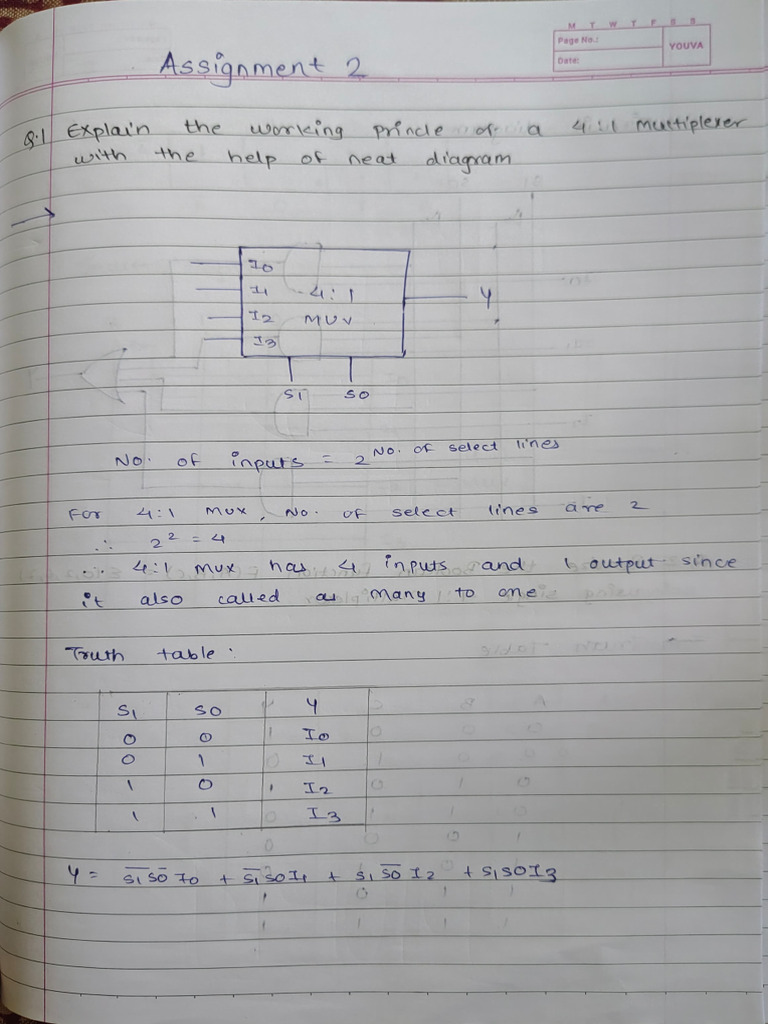 M T W T F S S
Page No.:
YOUVA
Date:
Assignment 2
Q.1 Explain the working princle of a 4:1 multiplexer
with the help of neat diagram
I0
I1 4:1 Y
I2 MUV
I3
S1 S0
No. of inputs = 2^No. of select lines
For 4:1 mux, No. of select lines are 2
∴ 2² = 4
∴ 4:1 mux has 4 inputs and 1 output since
it also called as many to one
Truth table:
S1 S0 Y
0 0 I0
0 1 I1
1 0 I2
1 1 I3
Y = S̅1 S̅0 I0 + S̅1 S0 I1 + S1 S̅0 I2 + S1 S0 I3